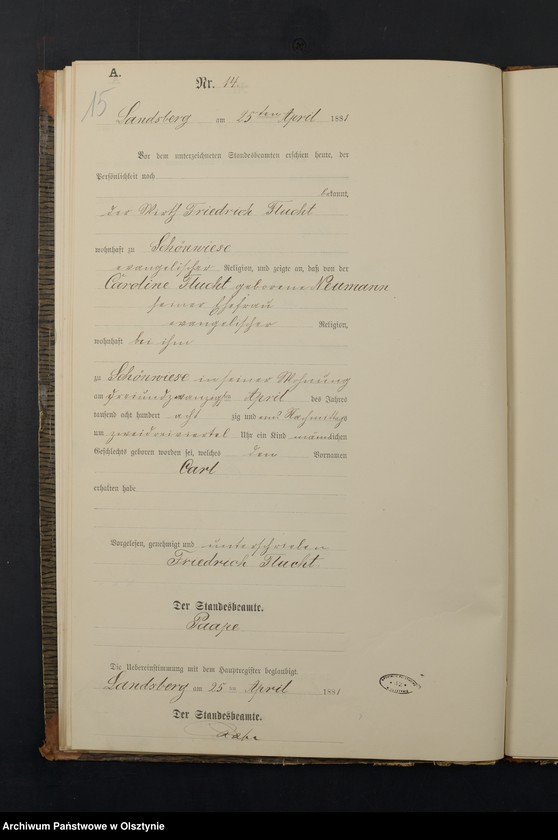 A.
Nr. 14.
15
Landsberg am 25ten April 1881
Vor dem unterzeichneten Standesbeamten erschien heute, der
Persönlichkeit nach
bekannt,
der Wirth Friedrich Flucht
wohnhaft zu Schönwiese
evangelischer Religion, und zeigte an, daß von der
Caroline Flucht geborene Neumann
seiner Ehefrau
evangelischer Religion,
wohnhaft bei ihm
zu Schönwiese in seiner Wohnung
am dreiundzwanzigsten April des Jahres
tausend acht hundert acht zig und eins Nachmittags
um zweidreiviertel Uhr ein Kind männlichen
Geschlechts geboren worden sei, welches den Vornamen
Carl
erhalten habe
Vorgelesen, genehmigt und unterschrieben
Friedrich Flucht.
Der Standesbeamte.
Paape
Die Uebereinstimmung mit dem Hauptregister beglaubigt
Landsberg am 25ten April 1881
Der Standesbeamte.
Archiwum Państwowe w Olsztynie